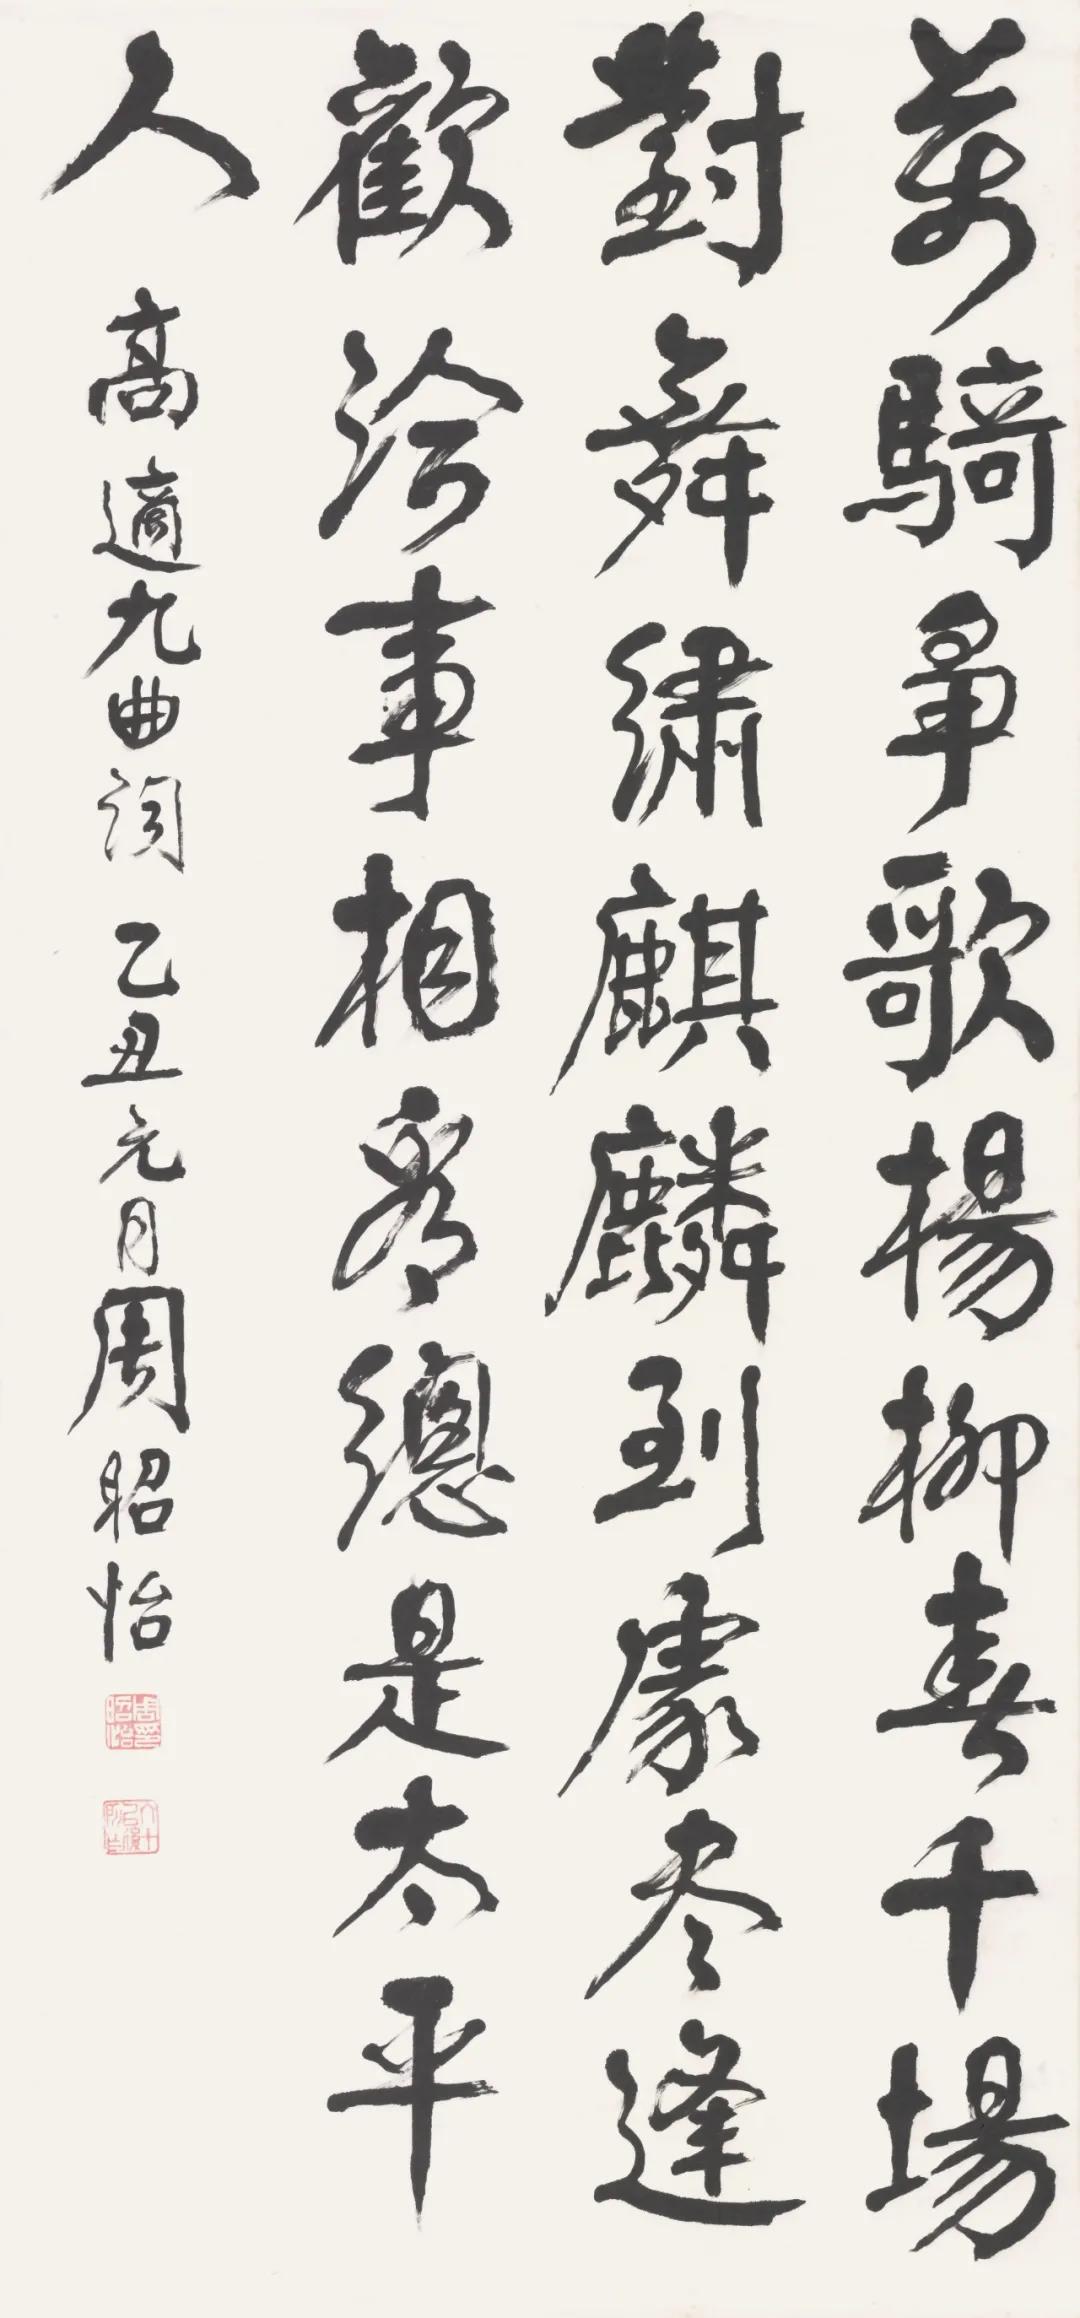 萬騎爭歌楊柳春千場
對舞繡麒麟到處尽逢
歡洽事相看總是太平
人
高適九曲詞 乙丑元月周昭怡
周昭怡